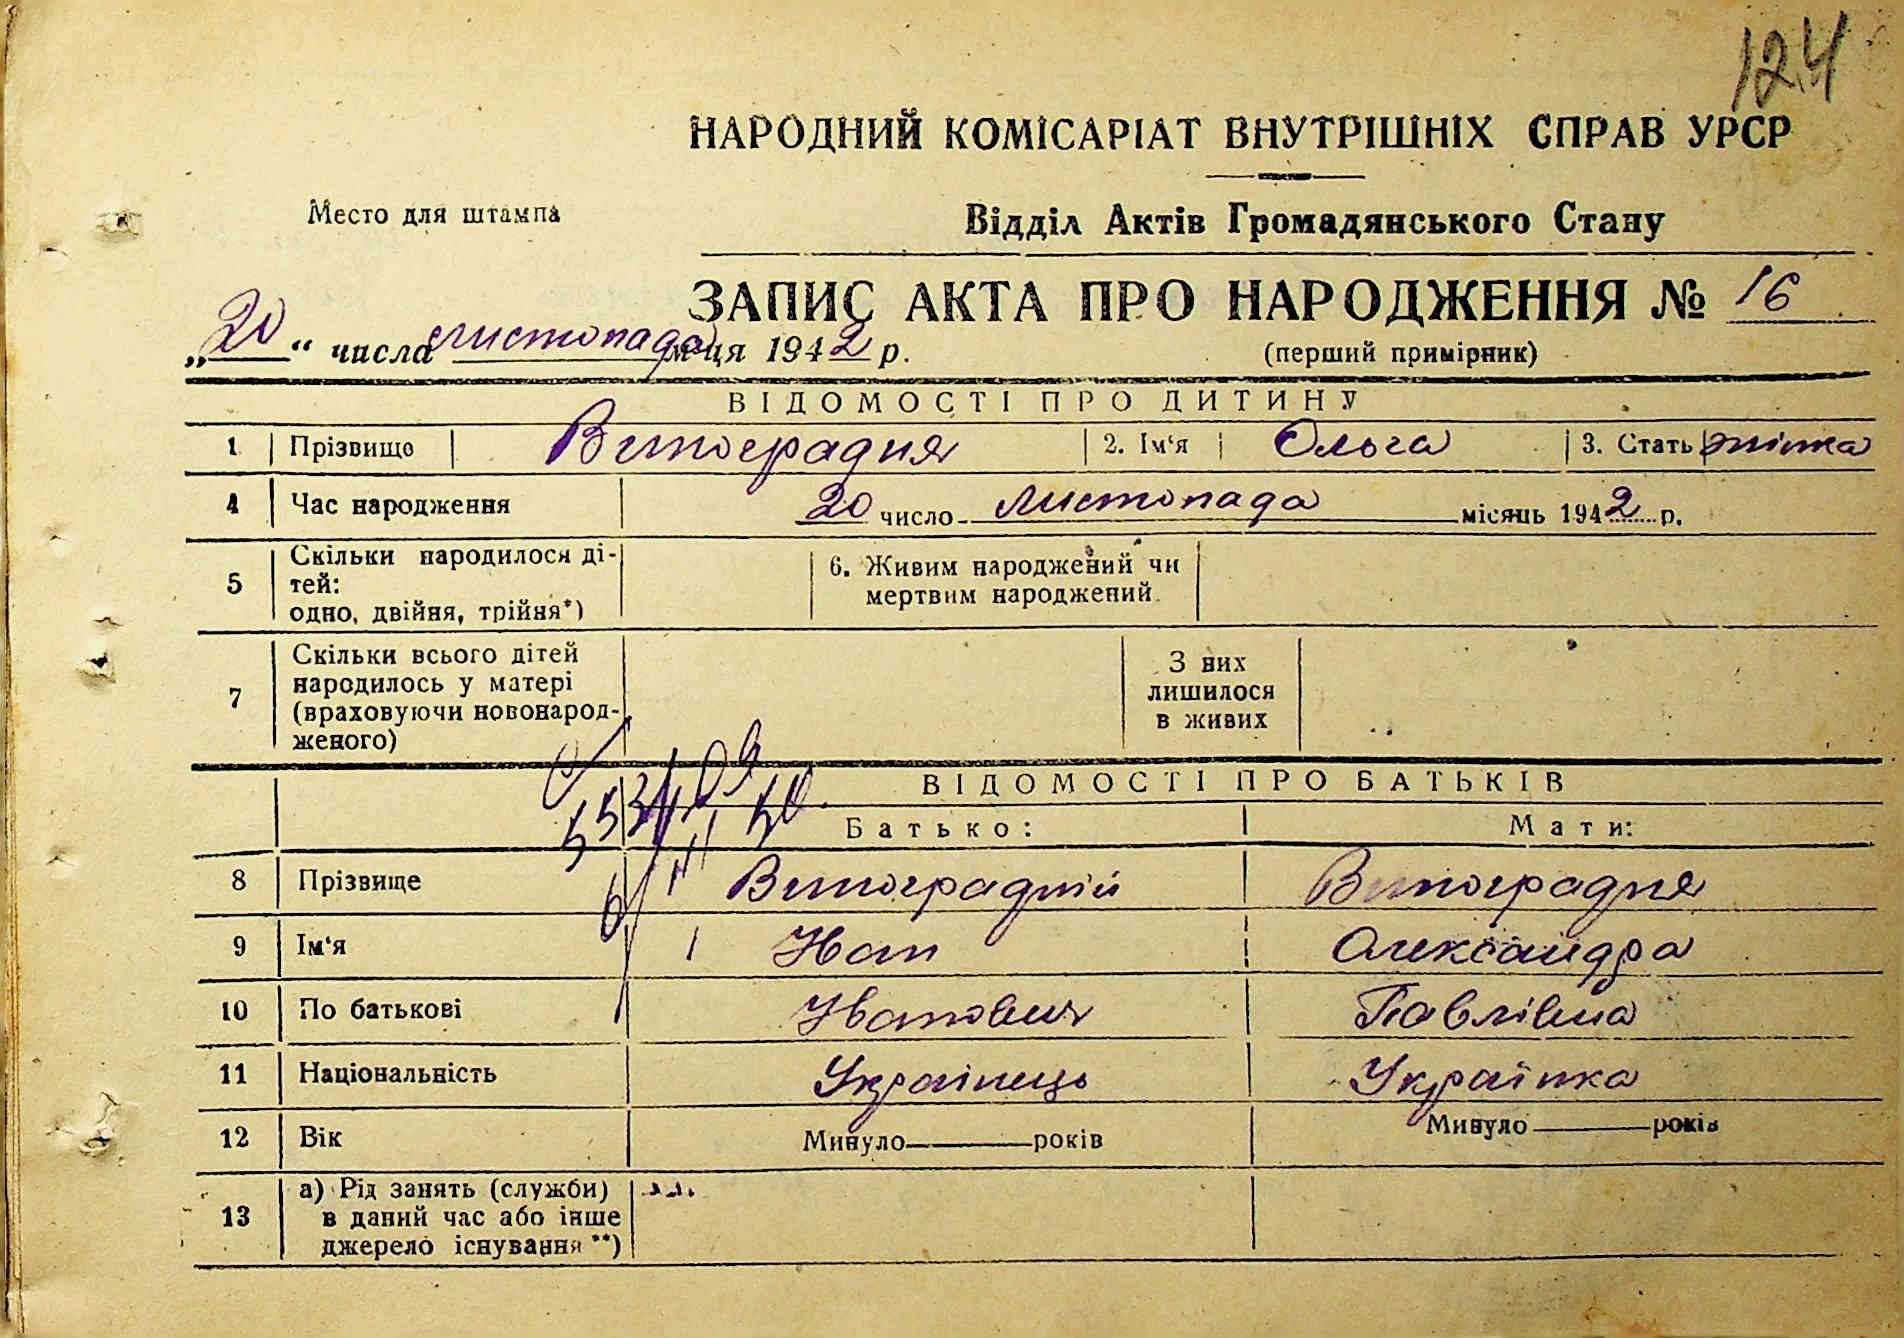 124
НАРОДНИЙ КОМІСАРІАТ ВНУТРІШНІХ СПРАВ УРСР
Место для штампа
Відділ Актів Громадянського Стану
ЗАПИС АКТА ПРО НАРОДЖЕННЯ № 16
„20“ числа листопада м-ця 1942 р.
(перший примірник)
ВІДОМОСТІ ПРО ДИТИНУ
1 Прізвище Виноградня 2. Ім‘я Ольга 3. Стать жінка
4 Час народження 20 число листопада місяць 1942 р.
5 Скільки народилося ді-
тей:
одно, двійня, трійня*)
6. Живим народжений чи
мертвим народжений
7 Скільки всього дітей
народилось у матері
(враховуючи новонарод-
женого)
З них
лишилося
в живих
ВІДОМОСТІ ПРО БАТЬКІВ
Батько: Мати:
8 Прізвище Виноградній Виноградня
9 Ім‘я Іван Олександра
10 По батькові Іванович Павлівна
11 Національність Українець Українка
12 Вік Минуло років Минуло років
13 а) Рід занять (служби)
в даний час або інше
джерело існування **)